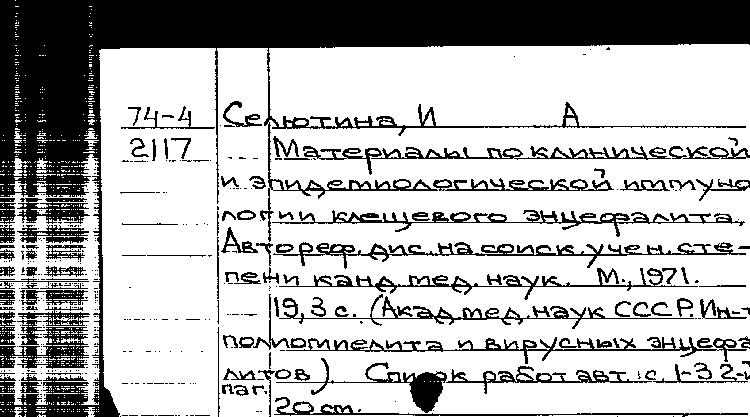 74-4 Селютина, И А
2117 Материалы по клинической
и эпидемиологической иммуно
логии клещевого энцефалита,
Автореф. дис. на соиск. учен. сте-
пени канд. мед. наук. М., 1971.
19, 3 с. (Акад. мед. наук СССР. Ин-т
полиомиелита и вирусных энцефа
литов). Список работ авт.: с. 1-3 2-й
паг.
20 cm.